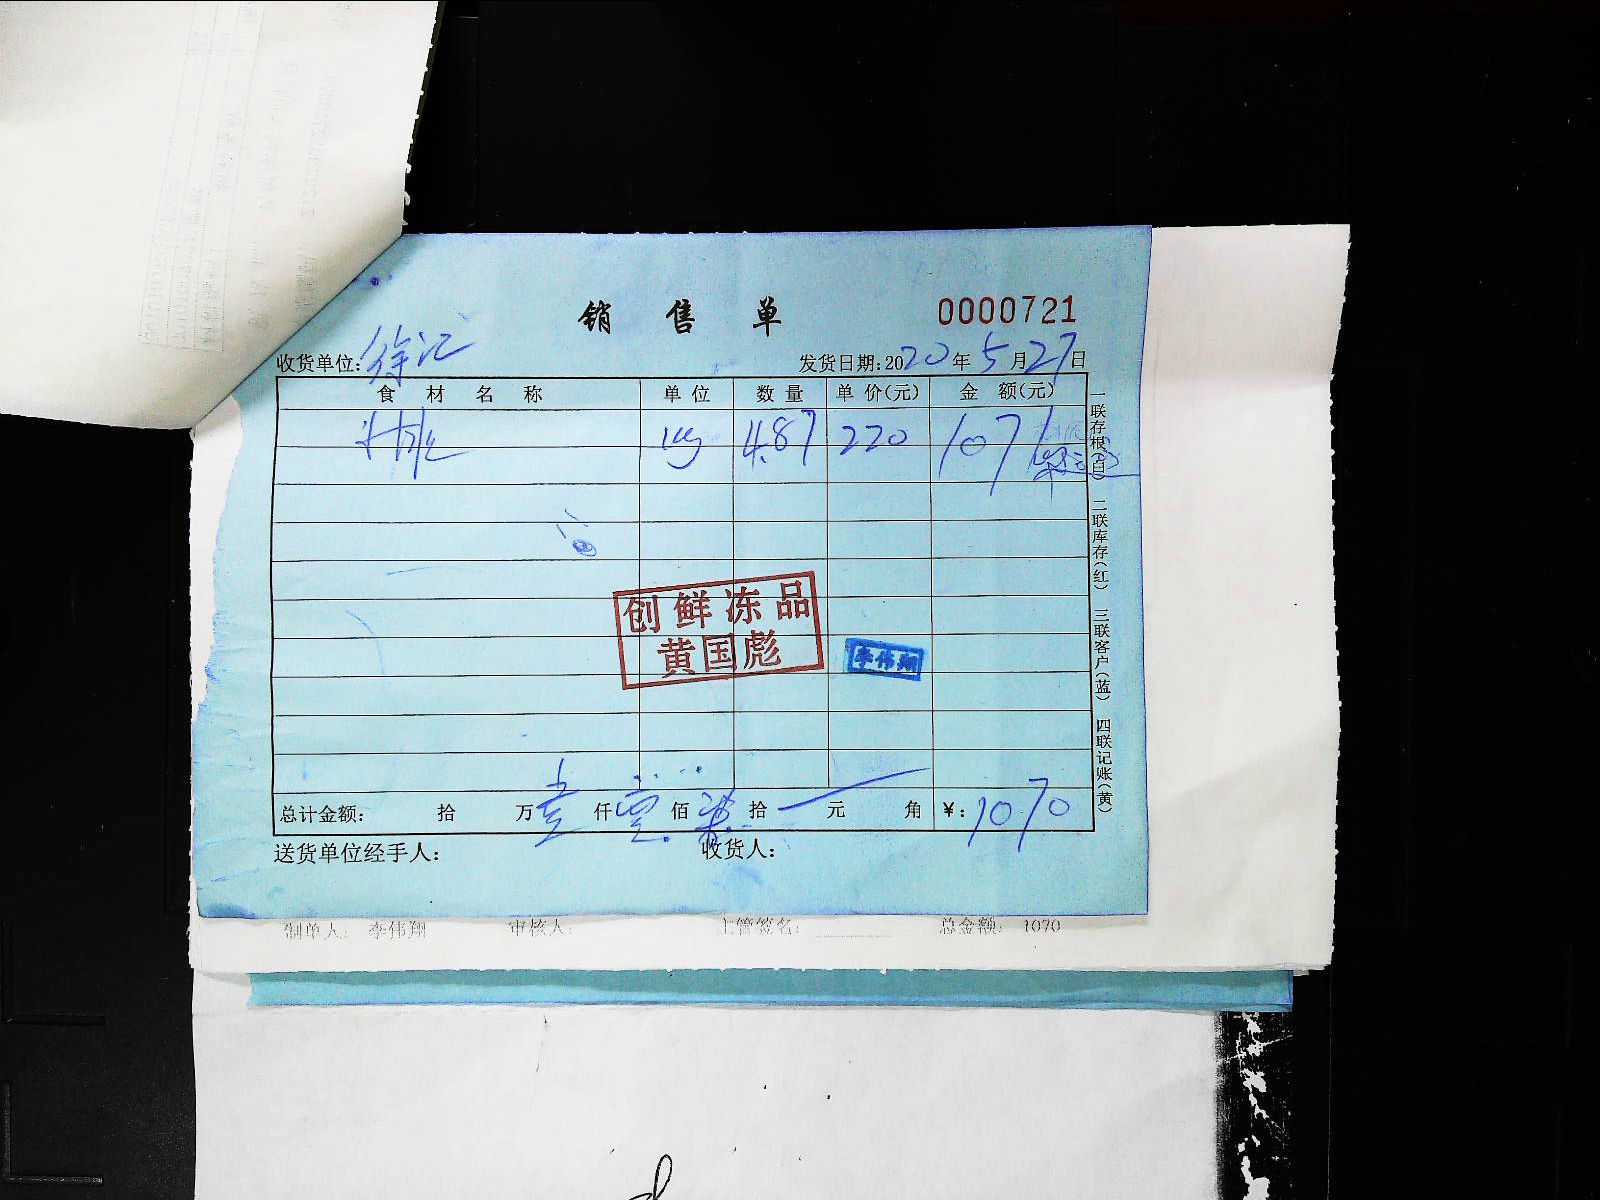 销售单 0000721
收货单位:徐记 发货日期:2020年5月27日
食材名称 单位 数量 单价(元) 金额(元)
kg 4.87 220 1071
创鲜冻品
黄国彪
李伟翔
总计金额: 拾 万壹仟零佰柒拾 元 角 ¥:1070
送货单位经手人: 收货人:
一联存根(白) 二联库存(红) 三联客户(蓝) 四联记账(黄)
制单人: 李伟翔 审核人: 主管签名: 总金额: 1070